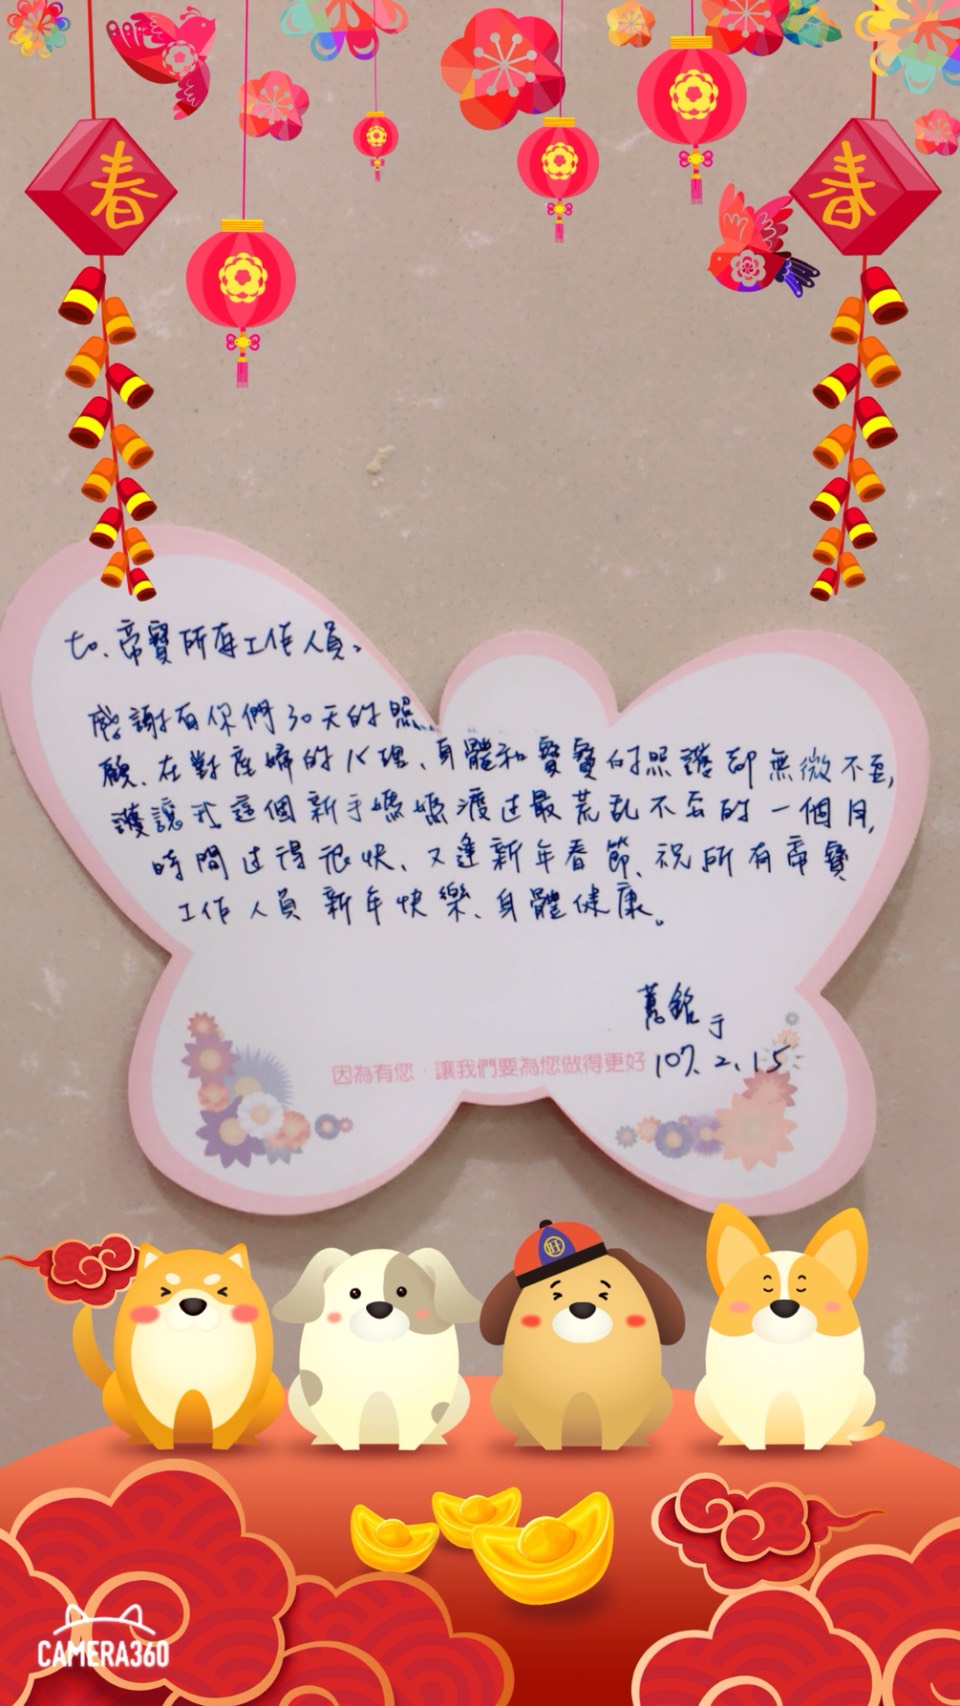 春
春
to. 帝寶所有工作人員。
感謝有你們30天的照
顧、在對產婦的心理、身體和寶寶的照護都無微不至,
護讓我這個新手媽媽渡过最荒乱不安的一個月,
時間过得很快、又逢新年春節、祝所有帝寶
工作人員新年快樂、身體健康。
蕙銘于
107.2.15
因為有您,讓我們要為您做得更好
旺
CAMERA360